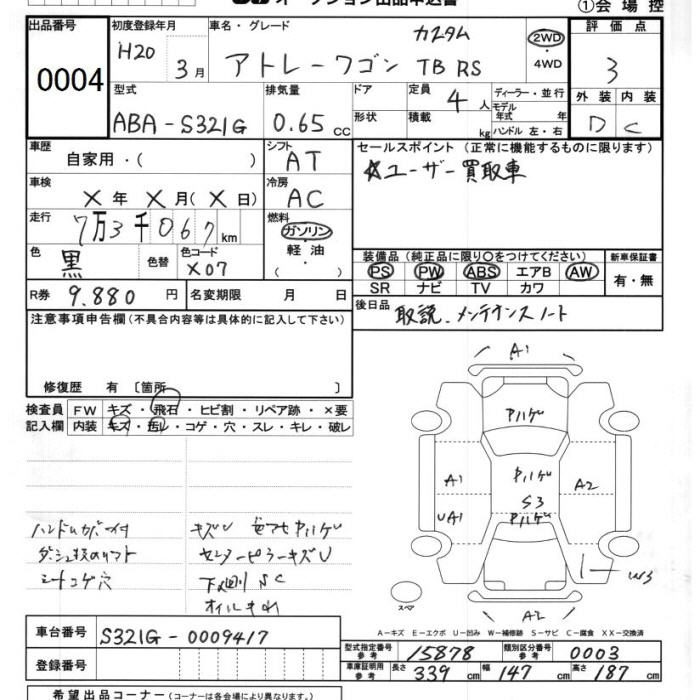 オークション出品申込書
①会場控
出品番号 0004
初度登録年月 H20 3月
車名・グレード カスタム
アトレーワゴン TB RS
2WD ・ 4WD
評価点 3
外装 内装
D C
型式 ABA-S321G
排気量 0.65 cc
ドア 形状
定員 4人
積載 kg
ディーラー・並行
モデル年式 年
ハンドル 左・右
車歴 自家用・( )
シフト AT
セールスポイント (正常に機能するものに限ります)
☆ユーザー買取車
車検 X年 X月(X日)
冷房 AC
走行 7万3千067km
燃料 ガソリン・軽油・( )
色 黒 色替 色コード X07
装備品 (純正品に限り○をつけてください)
新車保証書
PS PW ABS エアB AW
SR ナビ TV カワ
有・無
R券 9.880円
名変期限 月 日
後日品 取説.メンテナンスノート
注意事項申告欄(不具合内容等は具体的に記入して下さい)
修復歴 有 [箇所 ]
検査員記入欄
FW キズ・飛石・ヒビ割・リペア跡・×要
内装 キズ・汚レ・コゲ・穴・スレ・キレ・破レ
A1
A1
UA1
S3
A2
W3
A2
スペア
キズU
センターピラーキズU
シートコゲ穴
下廻りSC
A-キズ E-エクボ U-凹み W-補修跡 S-サビ C-腐食 XX-交換済
車台番号 S321G-0009417
登録番号
型式指定番号 参考 15878
類別区分番号 参考 0003
車庫証明用 参考 長さ 339cm 幅 147cm 高さ 187cm
希望出品コーナー (コーナーは各会場により異なります)